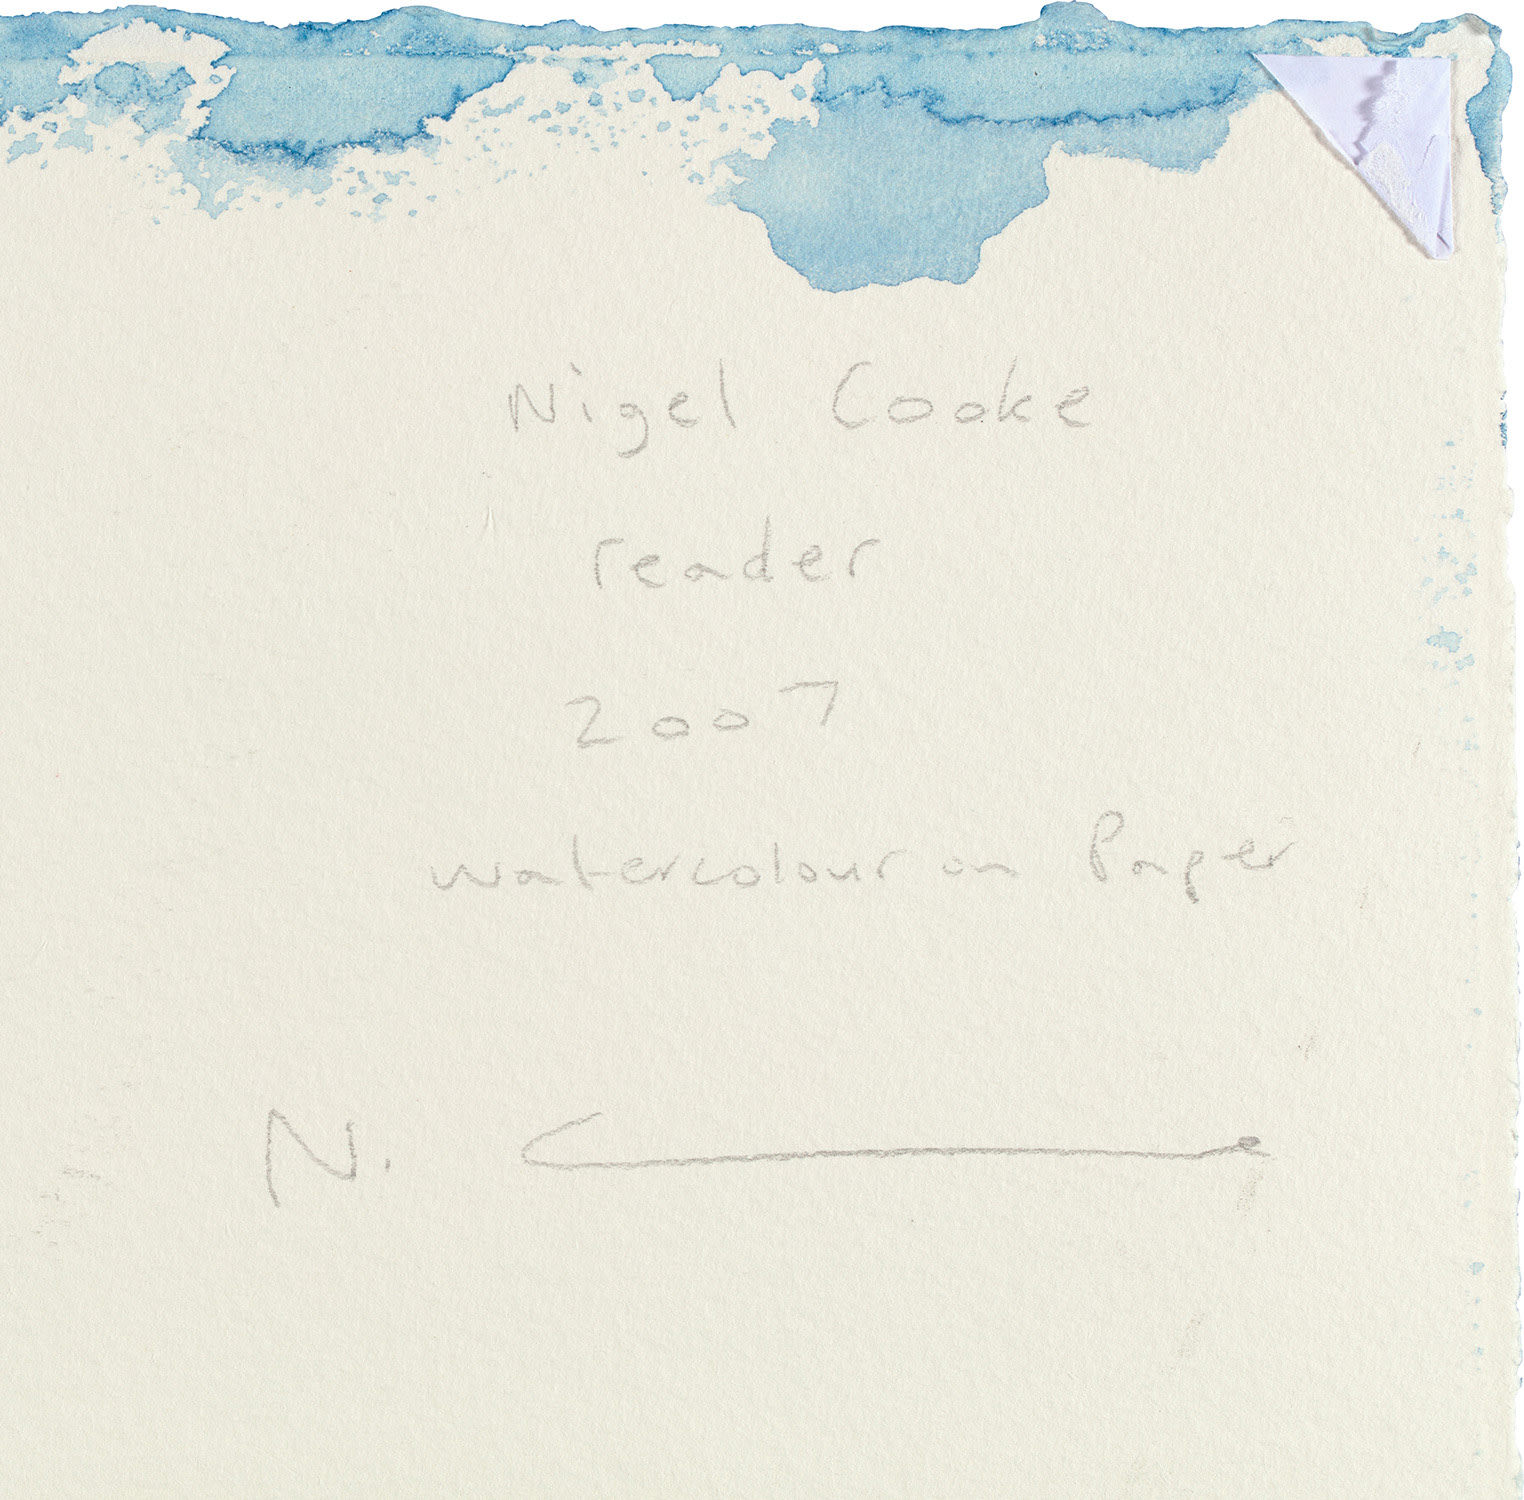 Nigel Cooke
reader
2007
watercolour on Paper
N. C